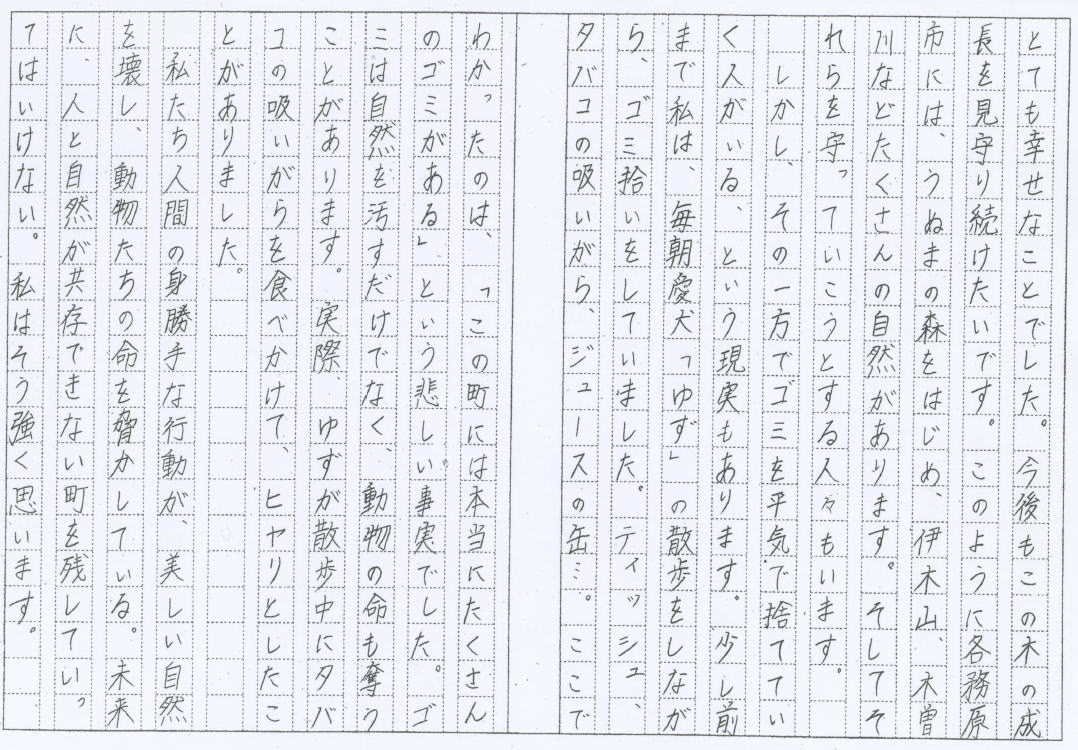 とても幸せなことでした。今後もこの木の成
長を見守り続けたいです。このように各務原
市には、うぬまの森をはじめ、伊木山、木曽
川などたくさんの自然があります。そしてそ
れらを守っていこうとする人々もいます。
しかし、その一方でゴミを平気で捨ててい
く人がいる、という現実もあります。少し前
まで私は、毎朝愛犬「ゆず」の散歩をしなが
ら、ゴミ拾いをしていました。ティッシュ、
タバコの吸いがら、ジュースの缶…。ここで
わかったのは、「この町には本当にたくさん
のゴミがある」という悲しい事実でした。ゴ
ミは自然を汚すだけでなく、動物の命も奪う
ことがあります。実際、ゆずが散歩中にタバ
コの吸いがらを食べかけて、ヒヤリとしたこ
とがありました。
私たち人間の身勝手な行動が、美しい自然
を壊し、動物たちの命を脅かしている。未来
に、人と自然が共存できない町を残していっ
てはいけない。私はそう強く思います。